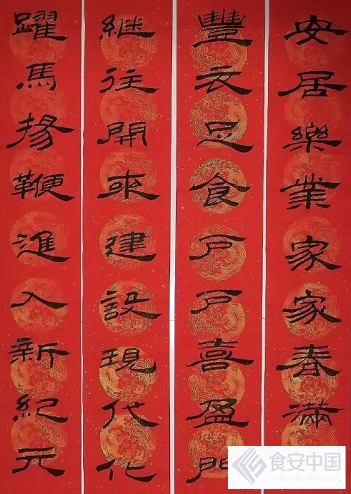 安居樂業家家春滿
豐衣足食戶戶喜盈門
継往開來建設現代化
躍馬揚鞭進入新紀元
食安中国